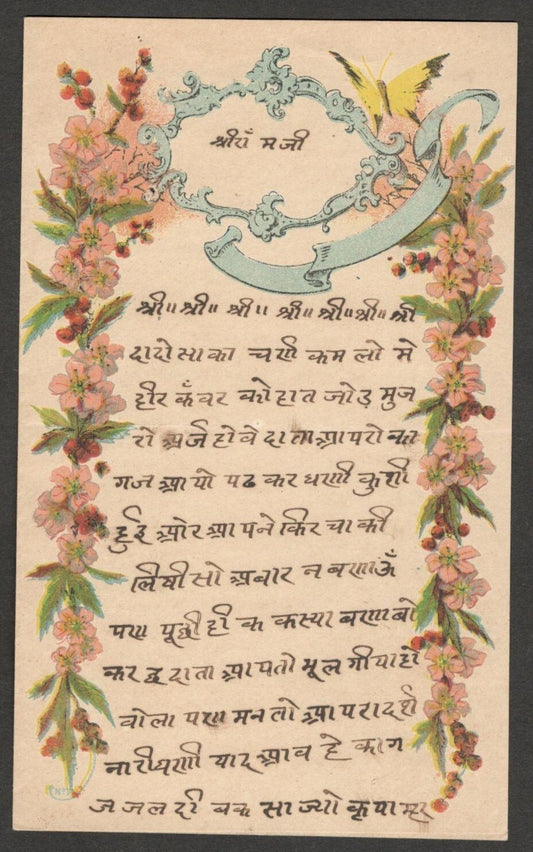 श्रीराँ मजी
श्री॥ श्री॥ श्री॥ श्री॥ श्री॥ श्री॥ श्री
दादोसा का चर्ण कमलो मे
हीर कँवर को हात जोड़ मुज
रो अर्ज होवे दाता आपरो का
गज आयो पढ कर धणी कुशी
हुई ओर आपने किरचा की
लिषी सो अबार न बणाऊँ
पण पूछी ही क कस्या बणाबो
कर हु दाता आप तो भूल गीया हो
वोला पण मन तो आप रा दर्श
नारी धणी याद आव हे काग
ज जलदी बकसाज्यो कृपा